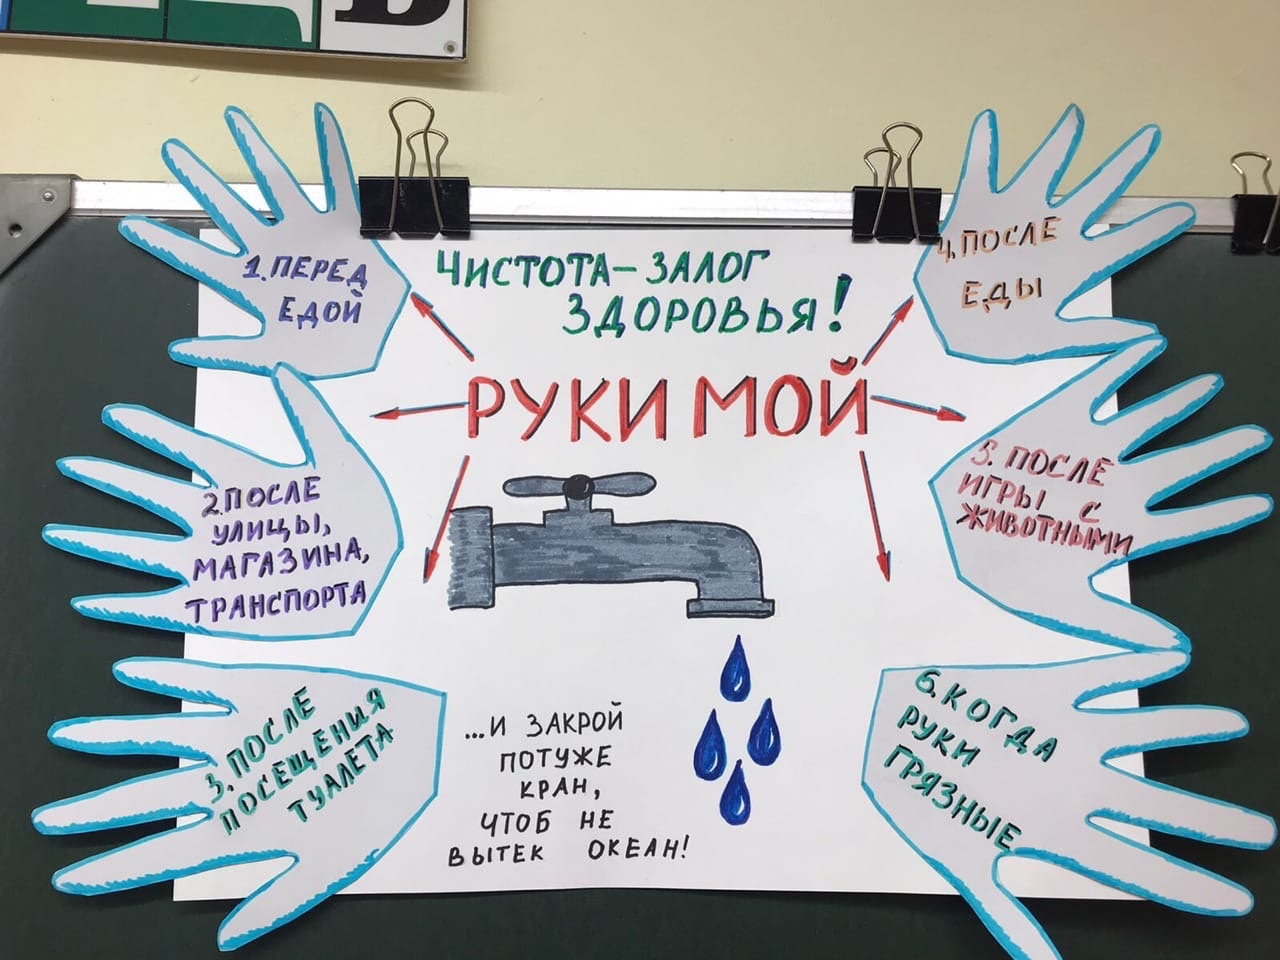 ЧИСТОТА – ЗАЛОГ
ЗДОРОВЬЯ!
РУКИ МОЙ
1. ПЕРЕД
ЕДОЙ
2. ПОСЛЕ
УЛИЦЫ,
МАГАЗИНА,
ТРАНСПОРТА
3. ПОСЛЕ
ПОСЕЩЕНИЯ
ТУАЛЕТА
4. ПОСЛЕ
ЕДЫ
5. ПОСЛЕ
ИГРЫ С
ЖИВОТНЫМИ
6. КОГДА
РУКИ
ГРЯЗНЫЕ
...И ЗАКРОЙ
ПОТУЖЕ
КРАН,
ЧТОБ НЕ
ВЫТЕК ОКЕАН!